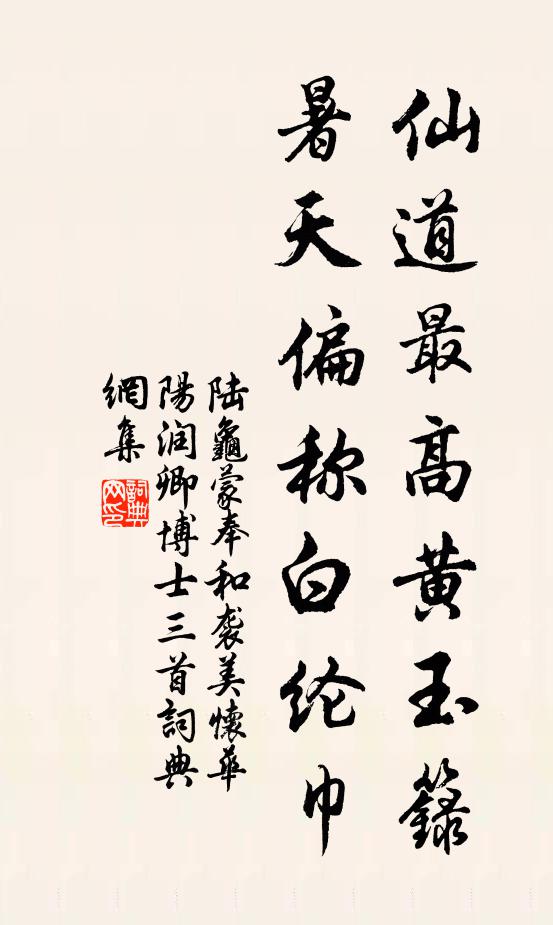 仙道最高黄玉籙
暑天偏称白纶巾
陆龜蒙奉和袭美懷華
陽润卿博士三首詞典
網集
詞典網印